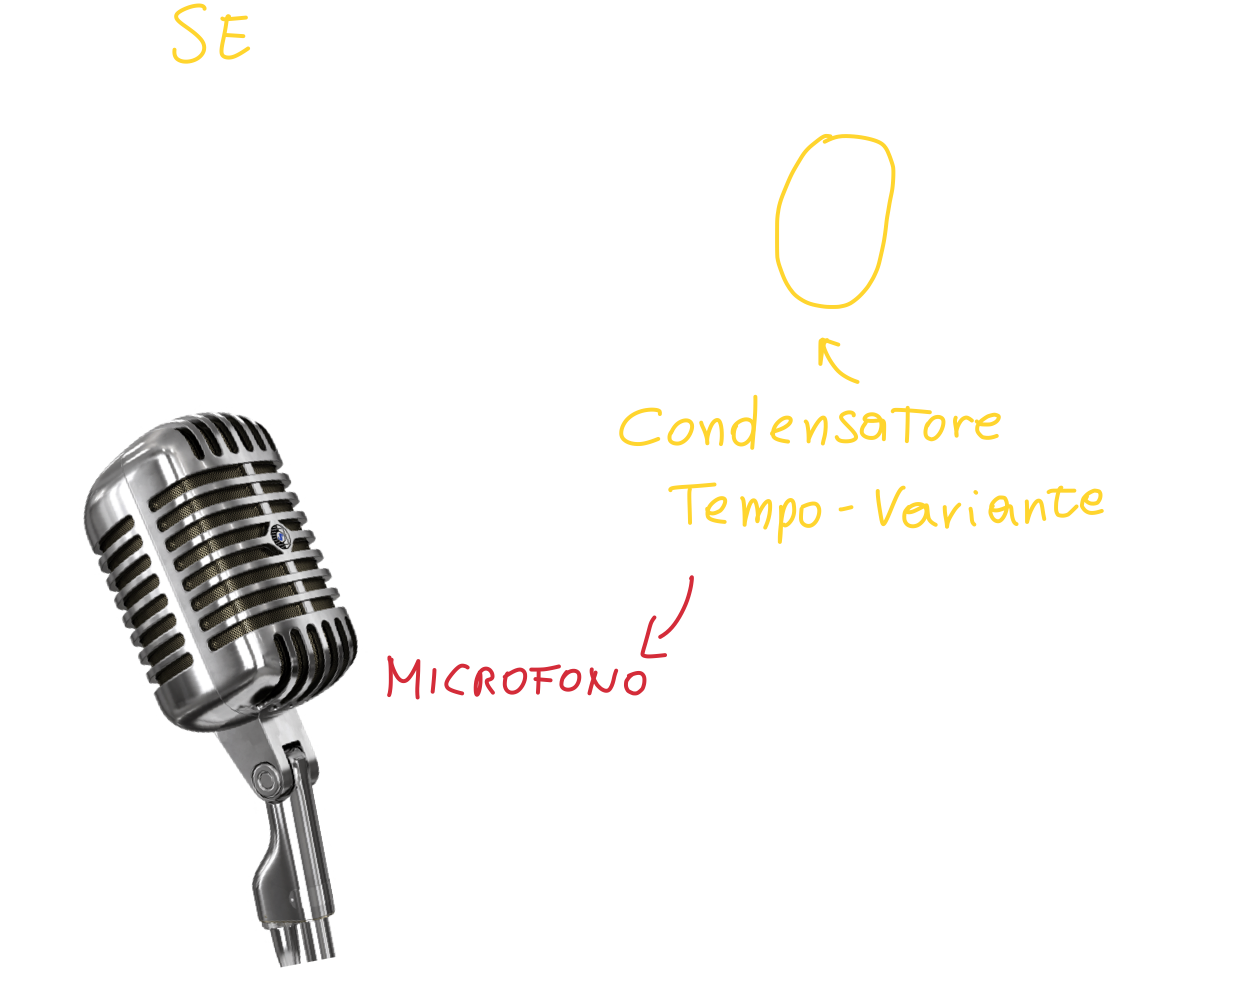 SE
Condensatore
Tempo-Variante
MICROFONO